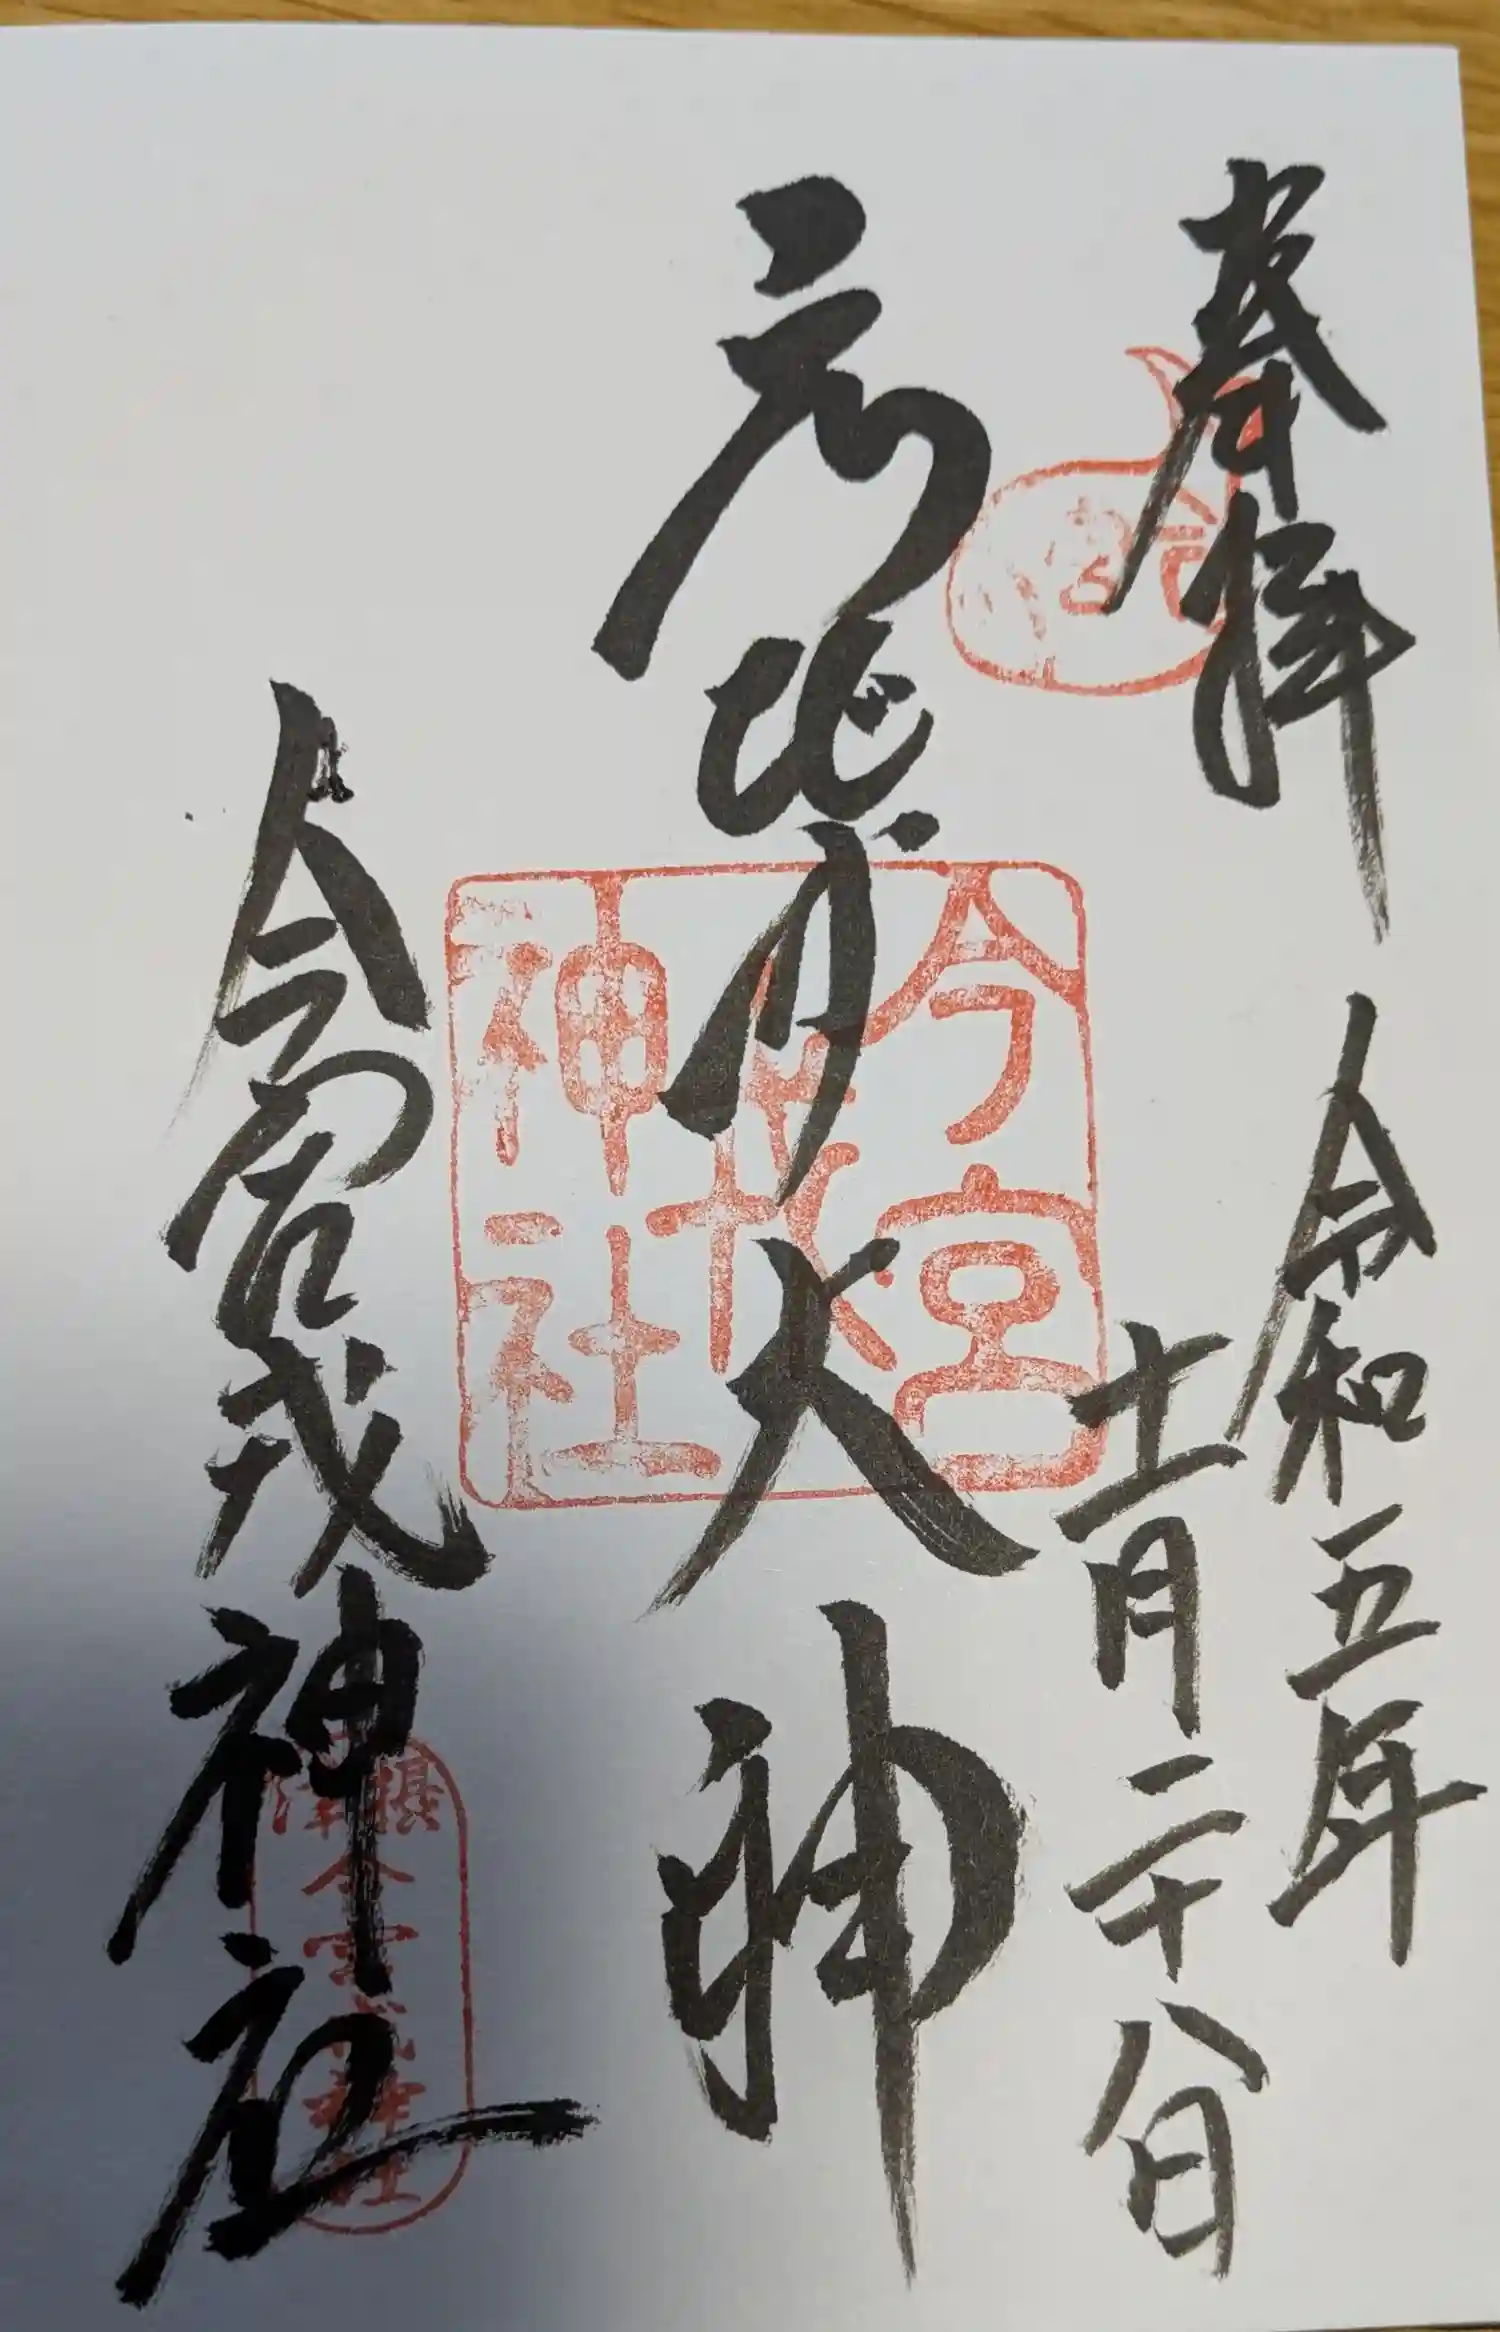 奉拝
令和五年
十一月二十八日
ゑびす大神
今宮戎神社
今宮
戎
神社
摂津
今宮戎神社